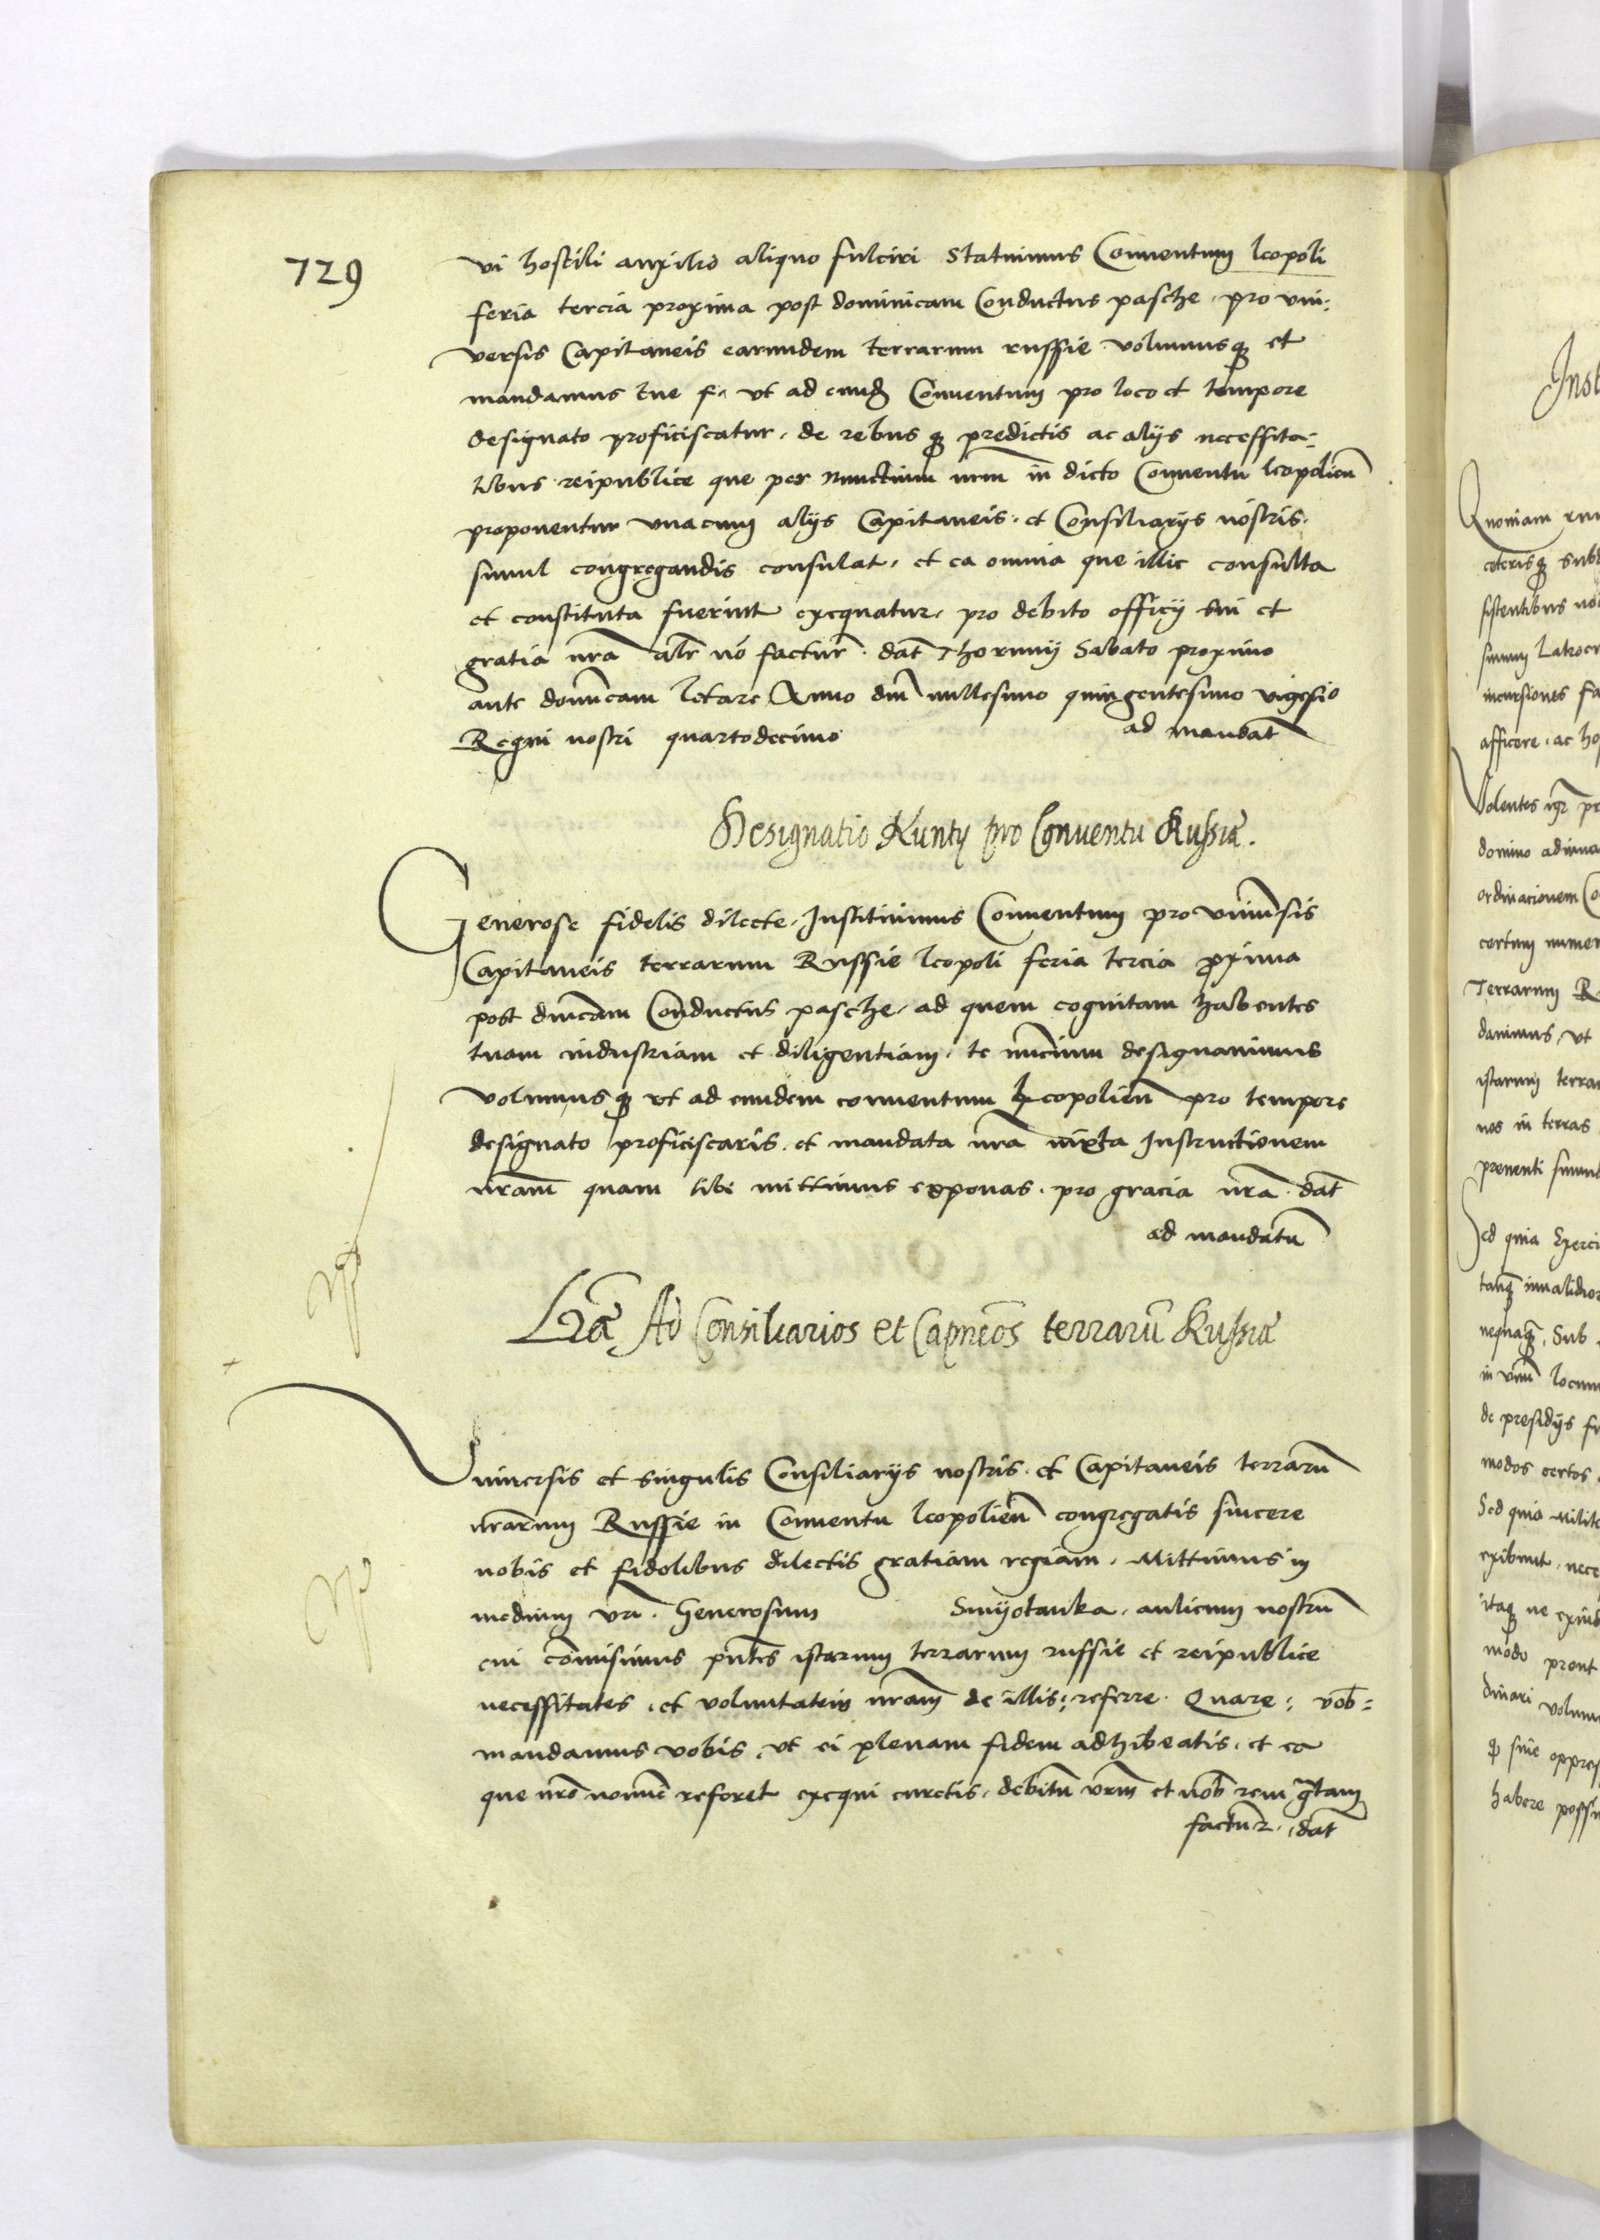 729
vi hostili auxilio aliquo fulciri Statuimus Conuentum leopoli
feria tercia proxima post dominicam Conductus pasche, pro vni:
versis Capitaneis earundem terrarum russie volumusq et
mandamus tue f. vt ad eund Conuentum pro loco et tempore
designato proficiscatur, de rebus q predictis ac alijs necessita:
tibus reipublice que per Nunctium nrm in dicto Conuentu leopolien
proponentur vnacum alijs Capitaneis, et Consiliarijs nostris
simul congregandis consulat, et ea omnia que illic consulta
et constituta fuerint exequatur, pro debito officij sui et
gratia nra alr no factur. dat Thorunij Sabato proximo
ante domincam letare Anno dni millesimo quingentesimo vigesio
Regni nostri quartodecimo ad mandat
Designatio Nuntij pro Conuentu Russiæ.
Generose fidelis dilecte, Instituimus Conuentum pro vniuersis
Capitaneis terrarum Russie leopoli feria tercia proxima
post dnicam Conductus pasche, ad quem cognitam habentes
tuam industriam et diligentiam, te nuncium designauimus
volumusq vt ad eundem conuentum leopolien pro tempore
designato proficiscaris, et mandata nra iuxta Instructionem
nram quam tibi mittimus exponas, pro gracia nra. dat
ad mandatu
Lræ Ad Consiliarios et Capneos terraru Russiæ
Vniuersis et singulis Consiliarijs nostris, et Capitaneis terraru
nrarum Russie in Conuentu leopolien congregatis sincere
nobis et fidelibus dilectis gratiam regiam. Mittimus in
medium vri. Generosum Smyotanka, aulicum nostru
cui comisimus pntes istarum terrarum russie et reipublice
necessitates, et voluntatem nram de illis, referre. Quare, vob=
mandamus vobis, vt ei plenam fidem adhibeatis, et ea
que nro nomine referet exequi curetis, debitu vrm et nob rem gratam
factur, dat
Inst
Quoniam
ceterisq sub
sistentibus
incursiones fa
afficere, ac ho
Volentes igr pr
domino adiuua
ordinacionem Co
certum numer
Terrarum R
damus, vt
istarum terra
nos in terras
Sed quia Exerci
tanq inualidior
nequaq, Sub
in vnu locum
de presidijs
modos certos
Sed quia Milit
exibunt, nece
itaq ne
modo prout
dinari volum
q sine oppres
habere possi